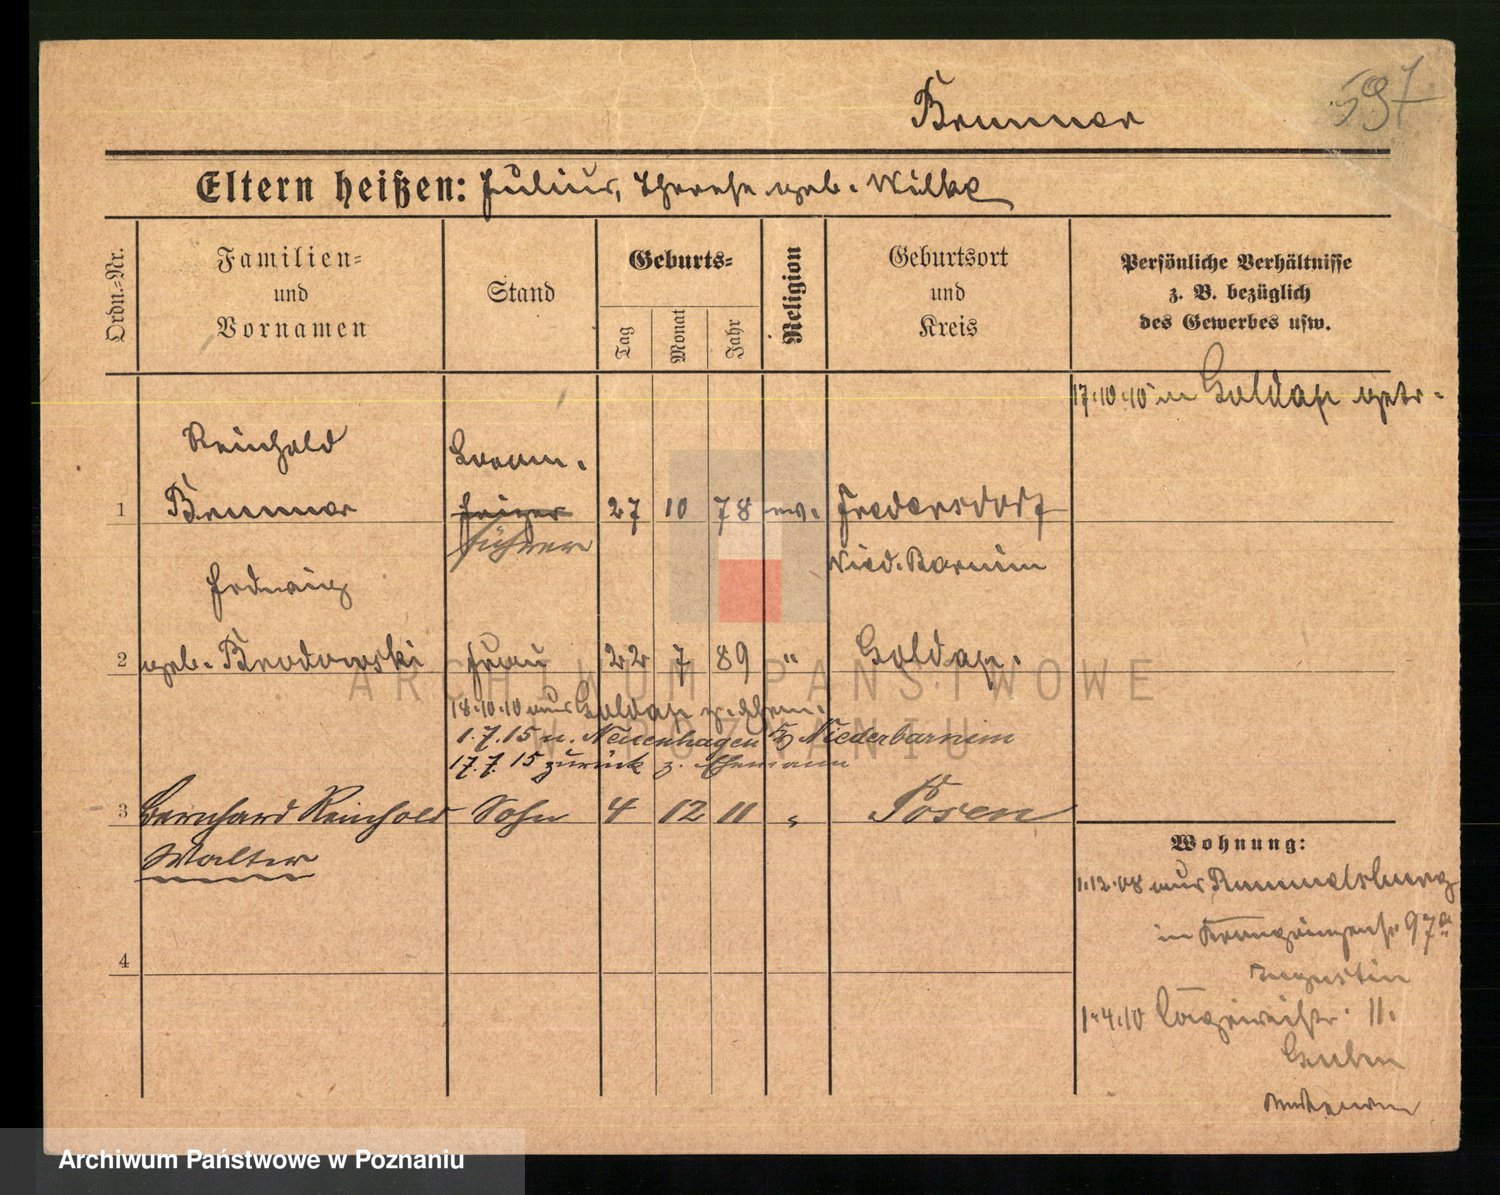 597
Brunner
Eltern heißen: Julius, Therese geb. Wilke
Ordn.-Nr.
Familien-
und
Vornamen
Stand
Geburts-
Tag
Monat
Jahr
Religion
Geburtsort
und
Kreis
Persönliche Verhältnisse
z. B. bezüglich
des Gewerbes usw.
17.10.10 in Goldap getr.
Reinhold
1 Brunner
heizer 27 10 78 ev. Fredersdorf
führer
Nied. Barnim
Hedwig
2 geb. Brodowski Frau 22 7 89 " Goldap.
18.10.10 aus Goldap z. Ehem.
1.7.15 n. Neuenhagen Niederbarnim
17.7.15 zurück z. Ehemann
3 Bernhard Reinhold Sohn 4 12 11 " Posen
Walter
Wohnung:
1.12.08 aus Rummelsburg
in 97a
Augustin
4
1.4.10 11.
ARCHIWUM PAŃSTWOWE
W POZNANIU
Archiwum Państwowe w Poznaniu